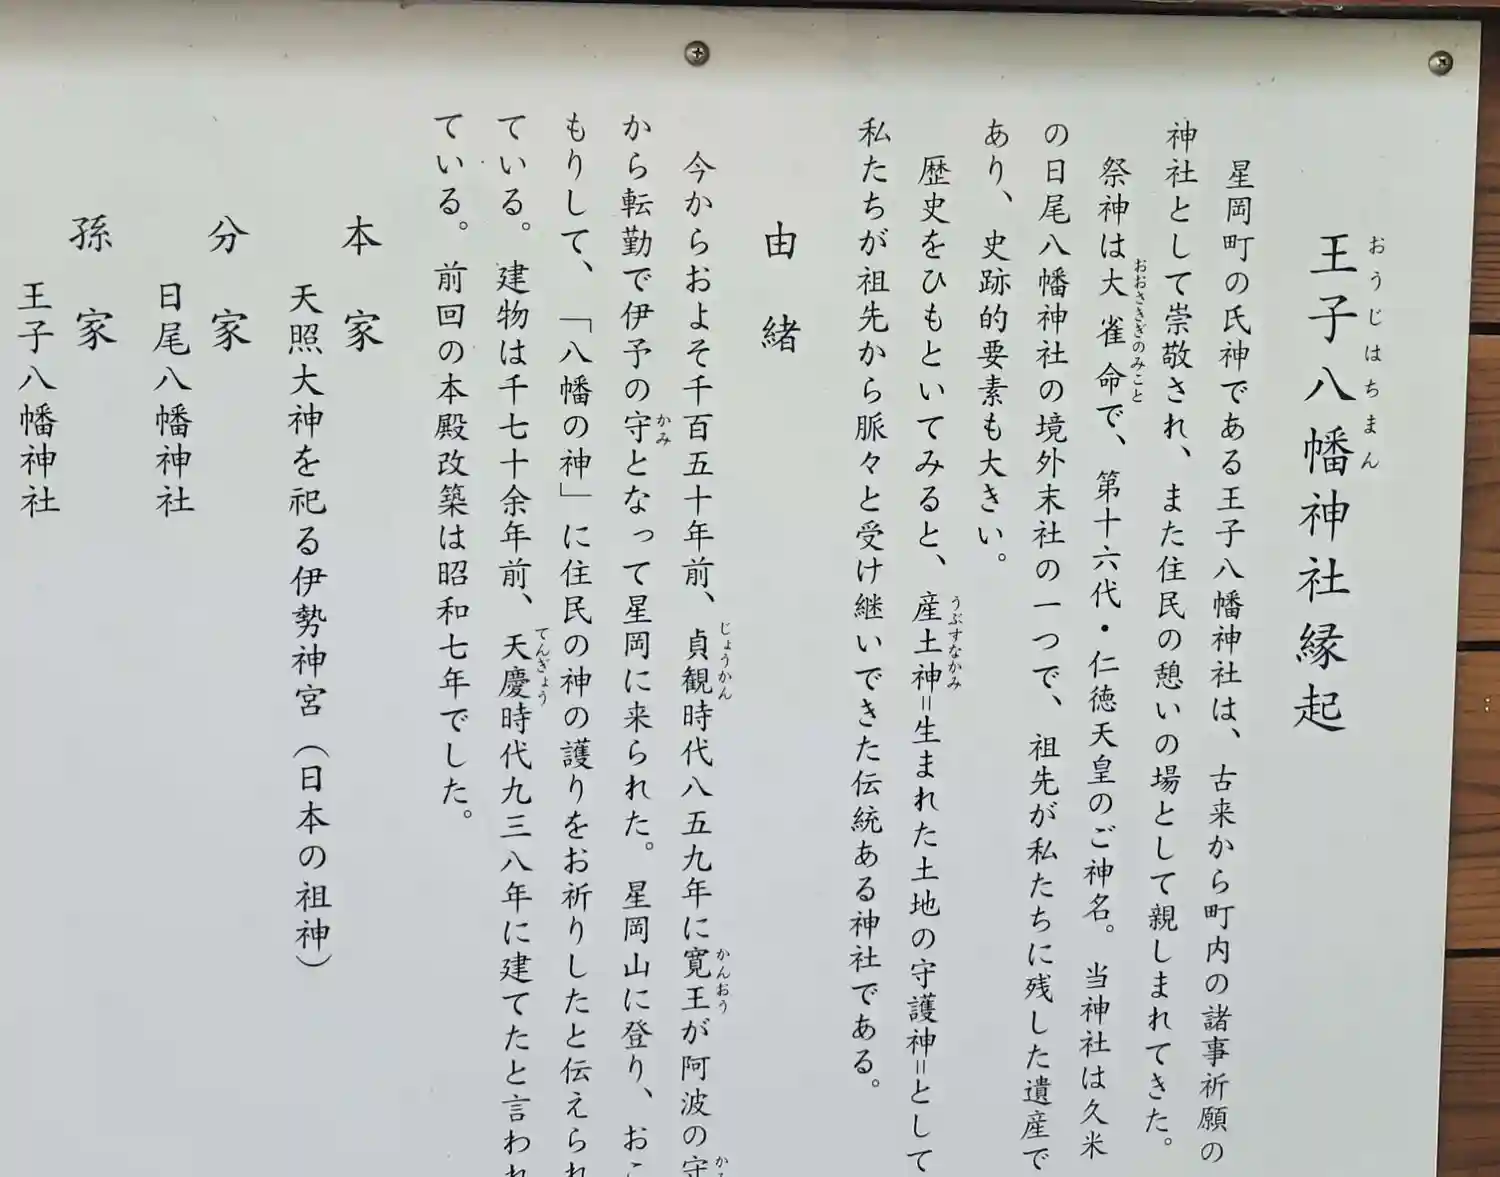 王子八幡神社縁起
おうじはちまん
星岡町の氏神である王子八幡神社は、古来から町内の諸事祈願の
神社として崇敬され、また住民の憩いの場として親しまれてきた。
祭神は大雀命で、第十六代・仁徳天皇のご神名。当神社は久米
おおさざぎのみこと
の日尾八幡神社の境外末社の一つで、祖先が私たちに残した遺産で
あり、史跡的要素も大きい。
歴史をひもといてみると、産土神=生まれた土地の守護神=として
うぶすなかみ
私たちが祖先から脈々と受け継いできた伝統ある神社である。
由緒
今からおよそ千百五十年前、貞観時代八五九年に寛王が阿波の守
じょうかん
かんおう
から転勤で伊予の守となって星岡に来られた。星岡山に登り、おこ
かみ
もりして、「八幡の神」に住民の神の護りをお祈りしたと伝えられ
ている。建物は千七十余年前、天慶時代九三八年に建てたと言われ
てんぎょう
ている。前回の本殿改築は昭和七年でした。
本家
天照大神を祀る伊勢神宮(日本の祖神)
分家
日尾八幡神社
孫家
王子八幡神社